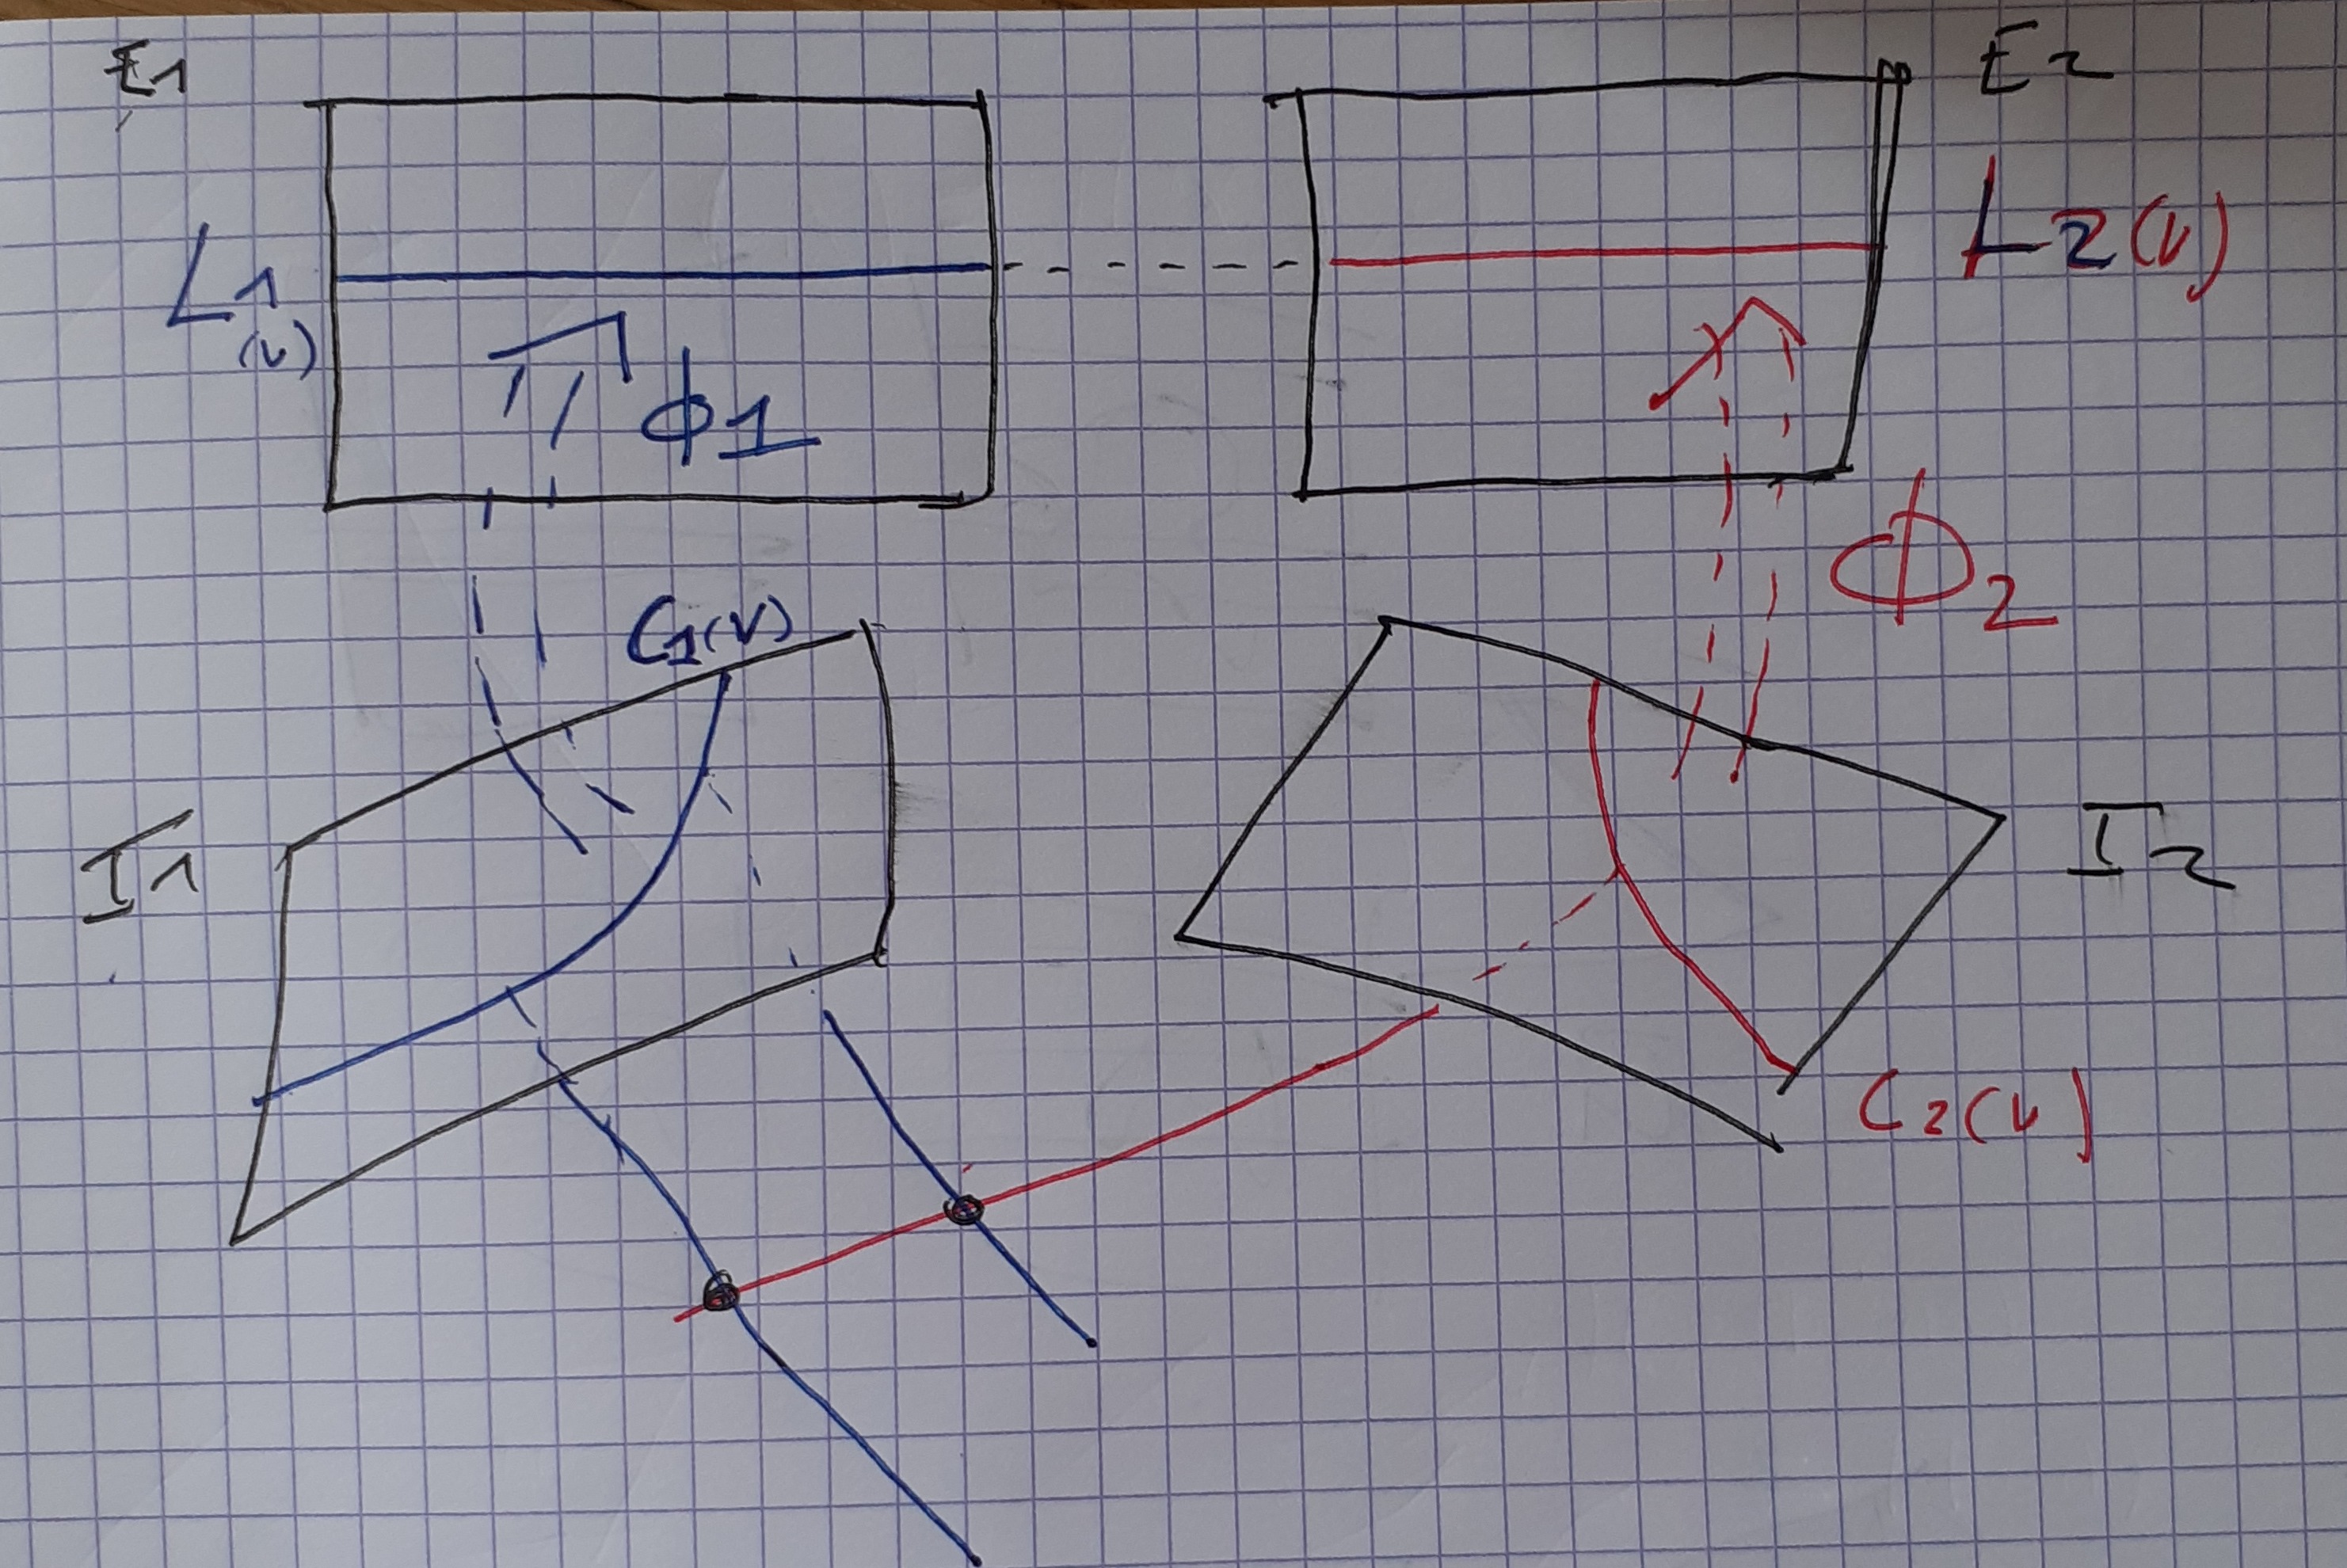 E1
E2
L1
(v)
L2(v)
ϕ1
ϕ2
C1(v)
I1
I2
C2(v)